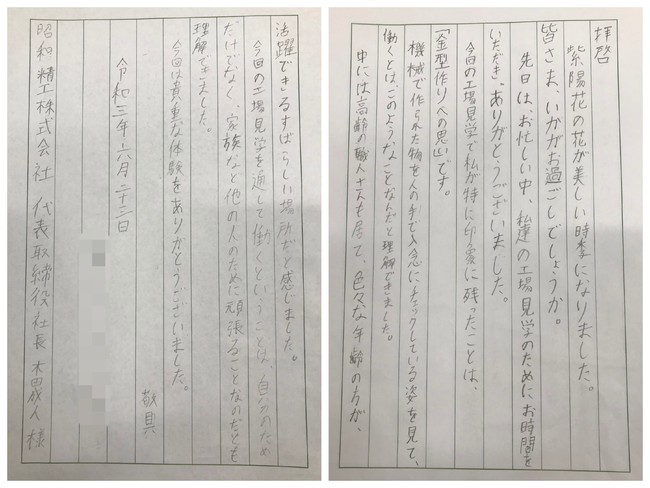 拝啓
紫陽花の花が美しい時季になりました。
皆さま、いかがお過ごしでしょうか。
先日は、お忙しい中、私達の工場見学のために、お時間を
いただき、ありがとうございました。
今回の工場見学で私が特に印象に残ったことは、
「金型作りへの思い」です。
機械で作られた物を人の手で入念にチェックしている姿を見て、
働くとは、このようなことなんだと理解できました。
中には高齢の職人さんも居て、色々な年齢の方が、
活躍できるすばらしい場所だと感じました。
今回の工場見学を通して働くということは、自分のため
だけでなく、家族など他の人のために頑張ることなのだとも
理解できました。
今回は貴重な体験をありがとうございました。
敬具
令和三年六月二十三日
昭和精工株式会社 代表取締役社長 木田成人 様